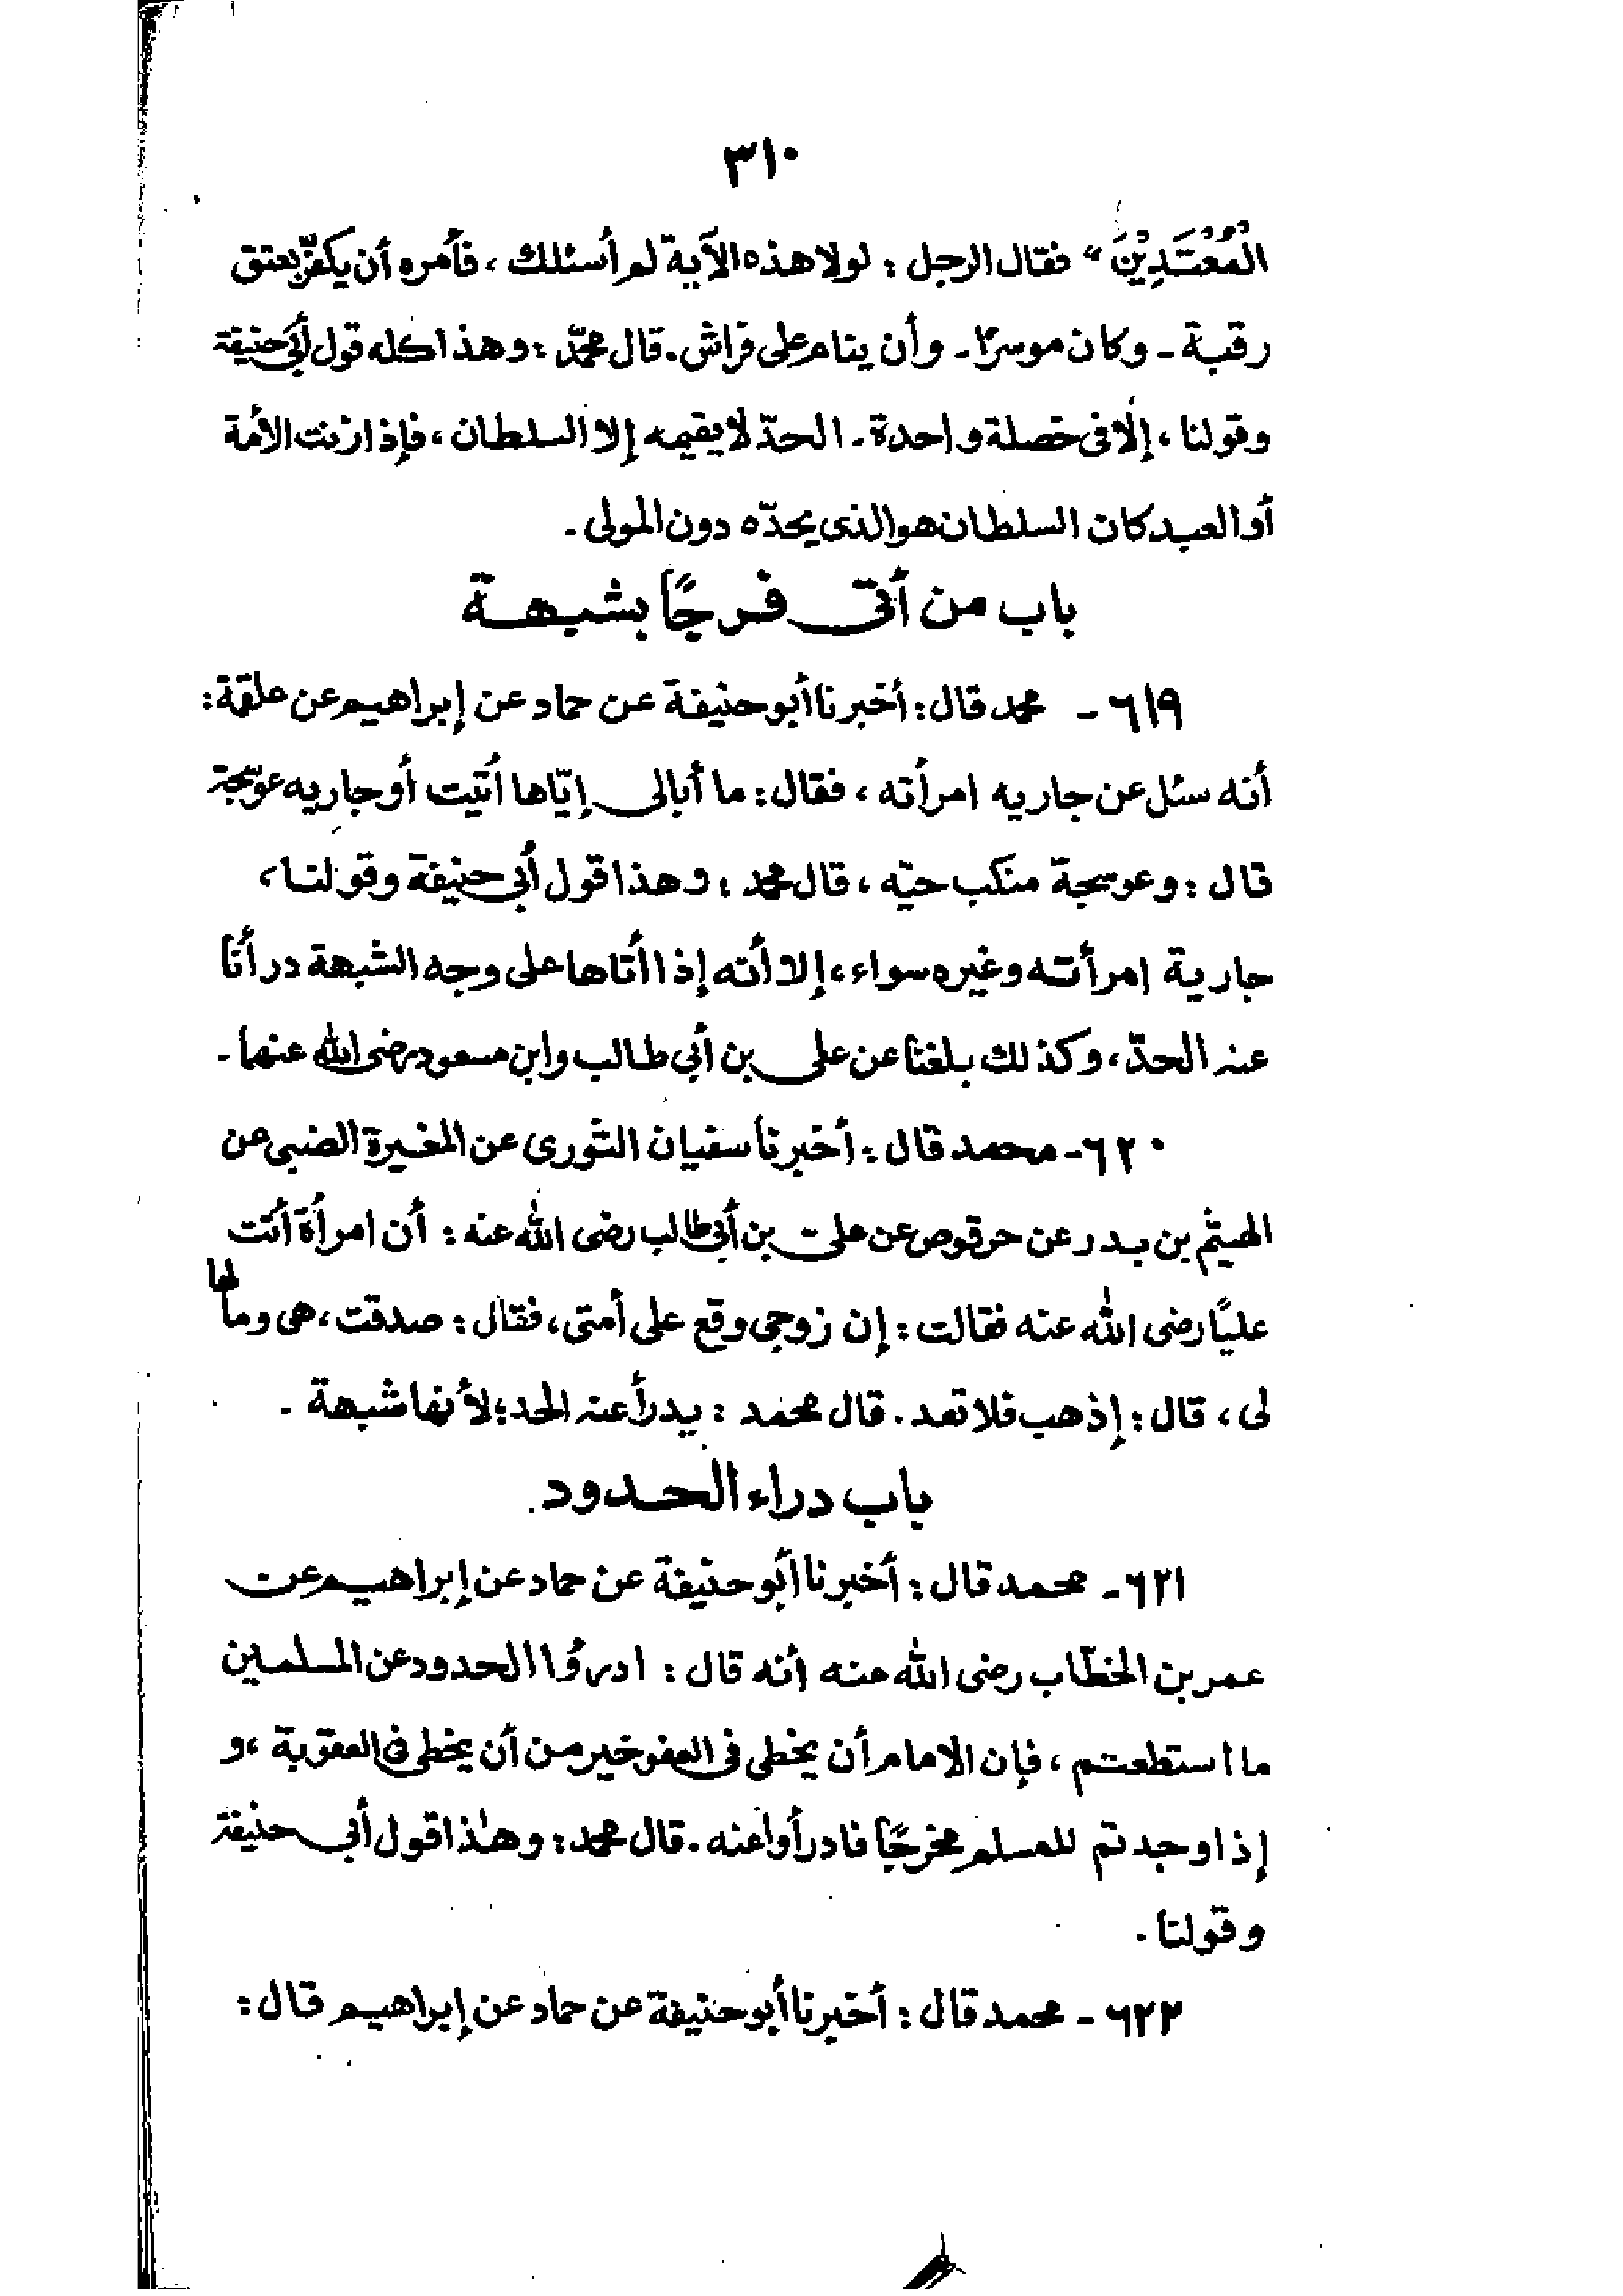 ٣١٠
الْمُعْتَدِيْنَ» فقال الرجل : لولا هذه الآية لم أسئلك ، فأمره أن يكفّر بعتق
رقبة ـ وكان موسرًا ـ وأن ينام على فراش. قال محمّد : وهذا كله قول أبي حنيفة
وقولنا ، إلا في خصلة واحدة ـ الحدّ لا يقيمه إلا السلطان ، فإذا زنت الأمة
أو العبد كان السلطان هو الذي يحدّه دون المولى ـ
باب من أتى فرجًا بشبهة
٦١٩ ـ محمد قال : أخبرنا أبو حنيفة عن حماد عن إبراهيم عن علقمة :
أنه سئل عن جاريه امرأته ، فقال : ما أبالى إيّاها أتيت أو جاريه عوسجة
قال : وعوسجة منكب حيّه ، قال محمد : وهذا قول أبي حنيفة وقولنا ،
جارية امرأته وغيره سواء ، إلا أنه إذا أتاها على وجه الشبهة درأنا
عنه الحدّ ، وكذلك بلغنا عن على بن أبي طالب وابن مسعود رضى الله عنهما ـ
٦٢٠ ـ محمد قال : أخبرنا سفيان الثورى عن المغيرة الضبى عن
الهيثم بن بدر عن حرقوص عن على بن أبي طالب رضى الله عنه : أن امرأة أتت
عليًا رضى الله عنه فقالت : إن زوجى وقع على أمتى ، فقال : صدقت ، هى ومالها
لى ، قال : إذهب فلا تعد . قال محمد : يدرأ عنه الحد ؛ لأنها شبهة ـ
باب دراء الحدود
٦٢١ ـ محمد قال : أخبرنا أبو حنيفة عن حماد عن إبراهيم عن
عمر بن الخطّاب رضى الله عنه أنه قال : ادرؤا الحدود عن المسلمين
ما استطعتم ، فإن الامام أن يخطى في العفو خير من أن يخطى في العقوبة ، و
إذا وجدتم للمسلم مخرجًا فادرأوا عنه . قال محمد : وهذا قول أبي حنيفة
وقولنا .
٦٢٢ ـ محمد قال : أخبرنا أبو حنيفة عن حماد عن إبراهيم قال :